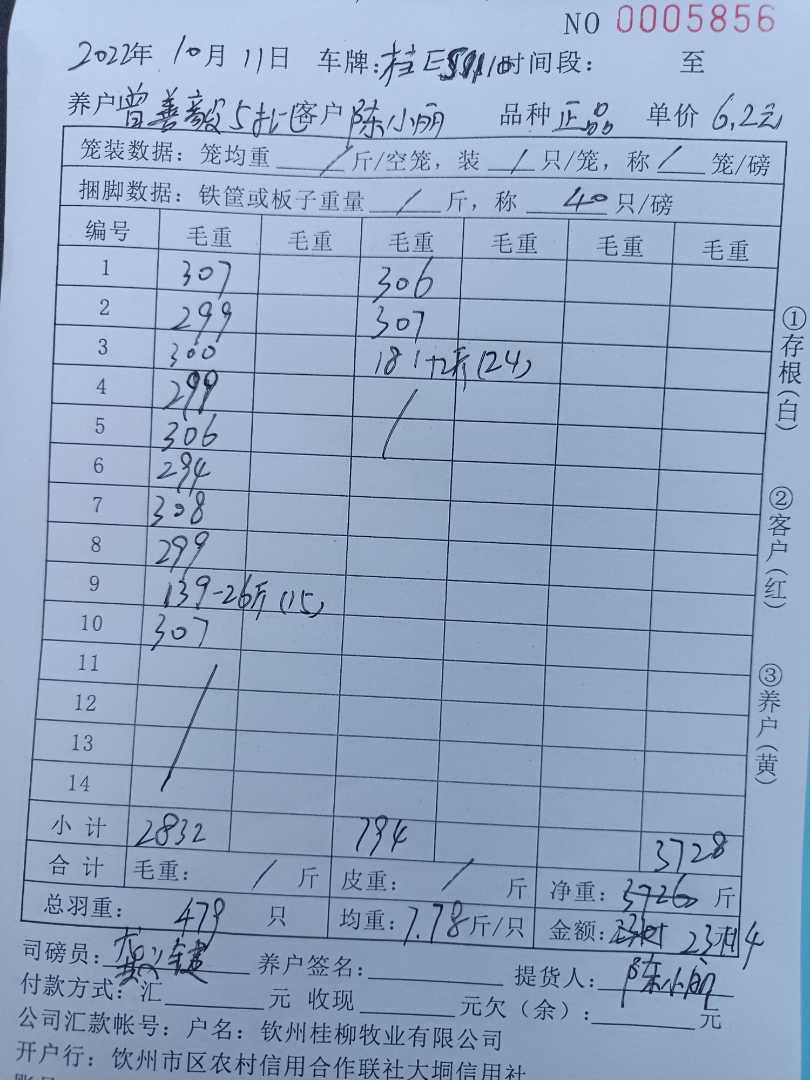 NO 0005856
2022年 10月 11日 车牌: 桂E 时间段: 至
养户 曾善毅5批 客户 陈小丽 品种 正品 单价 6.2元
笼装数据: 笼均重 / 斤/空笼, 装 / 只/笼, 称 / 笼/磅
捆脚数据: 铁筐或板子重量 / 斤, 称 40 只/磅
编号 毛重 毛重 毛重 毛重 毛重 毛重
1 307 306
2 299 307
3 300 181 (24)
4 299 /
5 306
6 294
7 308
8 299
9 139-26斤(15)
10 307
11 /
12
13
14
小计 2832 794 3728
合计 毛重: / 斤 皮重: / 斤 净重: 3726 斤
总羽重: 479 只 均重: 7.78斤/只 金额:
司磅员: 养户签名: 提货人: 陈小丽
付款方式: 汇 元 收现 元欠(余): 元
公司汇款帐号: 户名: 钦州桂柳牧业有限公司
开户行: 钦州市区农村信用合作联社大垌信用社
①存根(白) ②客户(红) ③养户(黄)